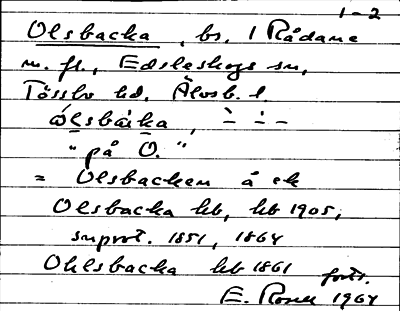 1-2
Olsbacka, bs. 1 Rådane
m. fl., Edsleskogs sn,
Tössbo hd, Älvsb. l.
ólsbàka, ̀– ̇– –
"på O."
= Olsbacken å ek
Olsbacka hb, hb 1905,
suprot. 1851, 1864
Ohlsbacka hb 1861
forts.
E. Rosell 1964